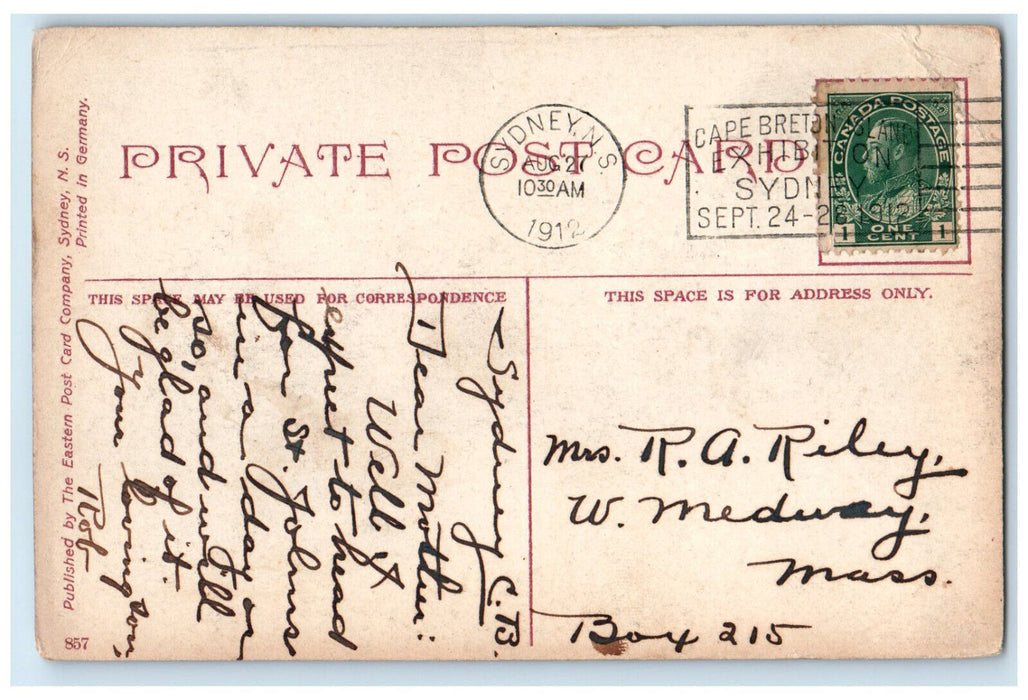 PRIVATE POST CARD
SYDNEY, N.S.
AUG 27
10 30 AM
1912
CAPE BRETON ISLAND
EXHIBITION
SYDNEY
SEPT. 24-26
CANADA POSTAGE
1 ONE CENT 1
THIS SPACE MAY BE USED FOR CORRESPONDENCE
THIS SPACE IS FOR ADDRESS ONLY.
Sydney C.B.
Dear Mother:
Well I
expect to head
for St. Johns
in a day or
so, and will
be glad of it.
Your loving son,
Rob
Mrs. R. A. Riley,
W. Medway,
Mass.
Box 215
Published by The Eastern Post Card Company, Sydney, N. S.
Printed in Germany.
857